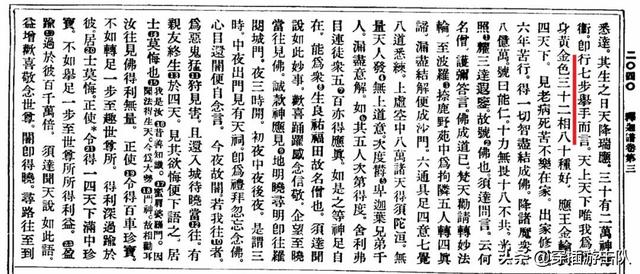 二〇四〇　釋迦譜卷第三
悉達。其生之日天降瑞應。三十有二萬神
衞即行七步舉手而言。天上天下唯我為
身黃金色三十二相八十種好。應王金輪
四天下。見老病死苦不樂在家。出家修
六年苦行。得一切智盡結成佛。降諸魔
八億萬。號曰能仁。十力無畏十八不共。光
照耀三達遐鑒。故號佛也。須達問言。云何
名僧。護彌答言。佛成道已梵天勸請轉妙法
輪至波羅㮈鹿野苑中為拘隣五人轉四真
諦。漏盡結解便成沙門。六通具足四意七覺
八道悉練。上虛空中八萬諸天得須陀洹。無
量天人發無上道意。次度欝卑迦葉兄弟千
人。漏盡意解。如其五人次第得度。舍利弗
目連徒眾五百亦得應真。如是之等神足自
在。能為眾生良祐福田故名僧也。須達聞
說如此妙事。歡喜踊躍感念信敬。企望至曉
當往見佛。誠款神應見地明曉尋明即往羅
閱城門。夜三時開。初夜中夜後夜。是謂三
時。中夜出門見有天祠。即為禮拜忽忘念佛。
心目還闇便自念言。今夜故闇若我往者。
為惡鬼猛獸見害。且還入城待曉當往。有
親友終生於四天。見其欲悔便下語之。居
士莫悔也
汝往見佛得利無量。正使令得百車珍寶。
不如轉足一步至趣世尊所得利深過踰於
彼。居士莫悔。正使令得一四天下滿中珍
寶。不如舉足一步至世尊所所得利益。盈
踰過於彼百千萬倍。須達聞天說如此語。
益增歡喜敬念世尊。闇即得曉。尋路往至到
头条 @穿插游击队